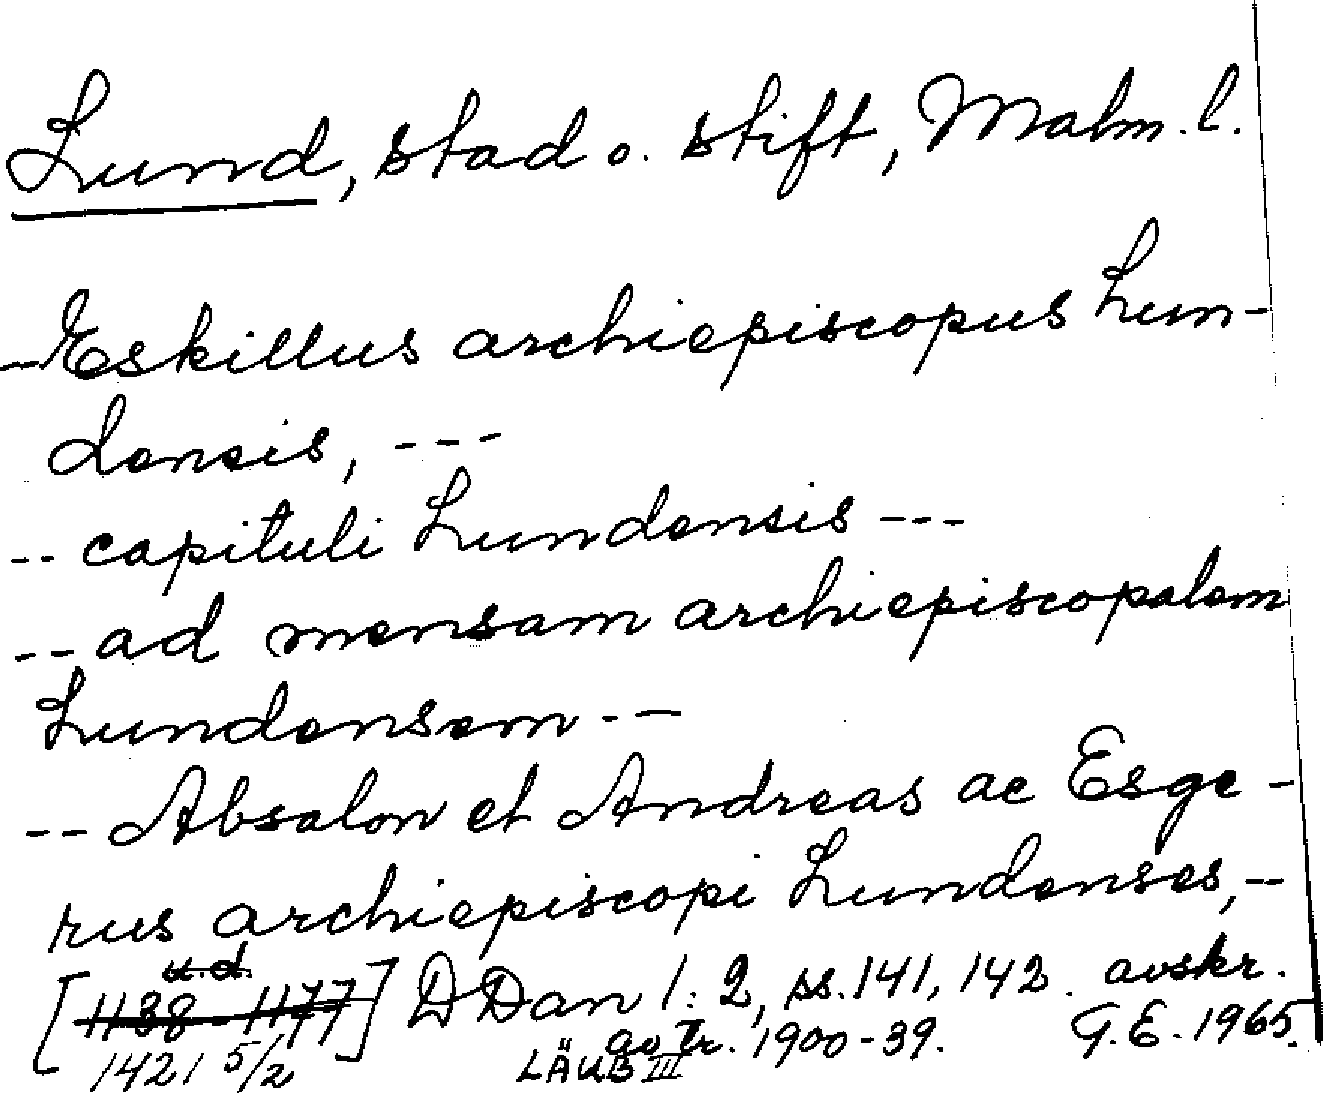 Lund, stad o. stift, Malm. l.
- Eskillus archiepiscopus Lun-
densis, ---
-- capituli Lundensis ---
-- ad mensam archiepiscopalem
Lundensem --
-- Absalon et Andreas ac Esge-
rus archiepiscopi Lundenses, -
u.d.
[1138-1177] DDan 1:2, ss. 141, 142. avskr.
1421 5/2 LÄUB III av tr. 1900-39. G.E. 1965.